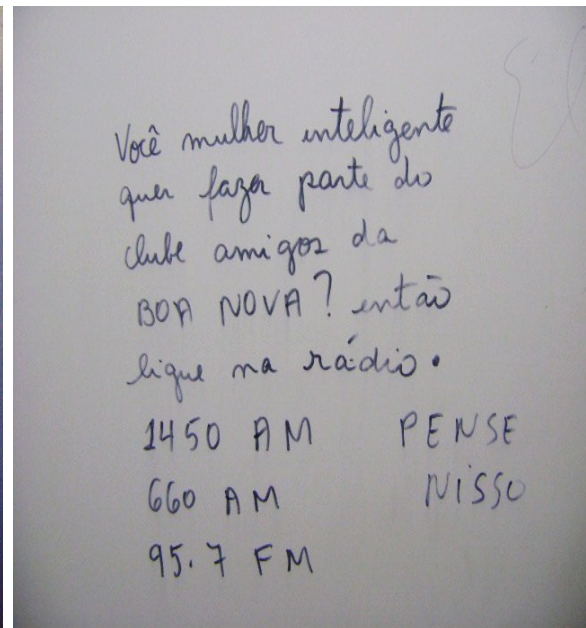 Você mulher inteligente
quer fazer parte do
clube amigos da
BOA NOVA? então
ligue na rádio.
1450 AM PENSE
660 AM NISSO
95.7 FM